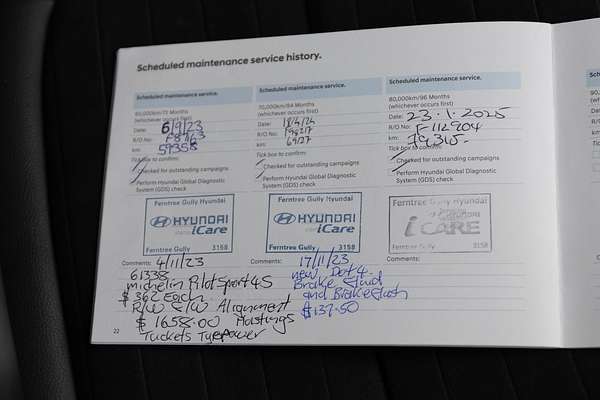 Scheduled maintenance service history.
Scheduled maintenance service.
60,000km/72 Months
(whichever occurs first)
Date: 6/9/23
R/O No: F8763
km: 59358
Tick box to confirm:
Checked for outstanding campaigns
Perform Hyundai Global Diagnostic
System (GDS) check
Ferntree Gully Hyundai
HYUNDAI
iCare
Ferntree Gully 3158
Comments: 4/11/23
61338
michelin Pilot Sport 4S
$362 Each
R/W F/W Alignment
$1658.00 Hastings
Tuckets Tyrepower
Scheduled maintenance service.
70,000km/84 Months
(whichever occurs first)
Date: 18/4/24
R/O No:
km:
Tick box to confirm:
Checked for outstanding campaigns
Perform Hyundai Global Diagnostic
System (GDS) check
Ferntree Gully Hyundai
HYUNDAI
iCare
Ferntree Gully 3158
Comments: 17/11/23
new Dot 4
Brake fluid
and Brake flush
$137.50
Scheduled maintenance service.
80,000km/96 Months
(whichever occurs first)
Date: 23.1.2025
R/O No: F112904
km: 79,315.
Tick box to confirm:
Checked for outstanding campaigns
Perform Hyundai Global Diagnostic
System (GDS) check
Ferntree Gully Hyundai
iCARE
Ferntree Gully 3158
Comments:
22
Sche
90,0
(whic
Date:
R/O
km:
Tick